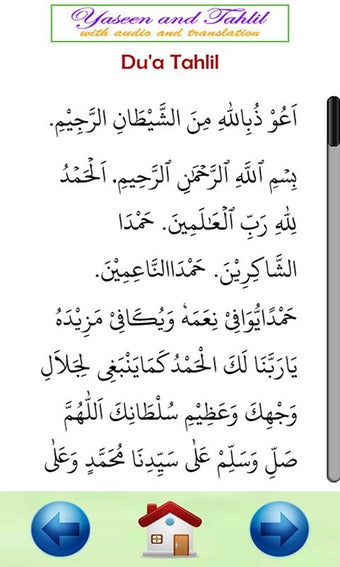 Yaseen and Tahlil
with audio and translation
Du'a Tahlil
اَعُوْ ذُبِاللهِ مِنَ الشَّيْطَانِ الرَّجِيْمِ.
بِسۡمِ ٱللَّهِ ٱلرَّحۡمَٰنِ ٱلرَّحِيمِ. اَلۡحَمۡدُ
لِلَّهِ رَبِّ ٱلۡعَٰلَمِينَ. حَمْدَا
الشَّاكِرِيْنَ. حَمْدَاالنَّاعِمِيْنَ.
حَمْدًايُّوَافِيْ نِعَمَهٗ وَيُكَافِيْ مَزِيْدَهُ
يَارَبَّنَا لَكَ الْحَمْدُكَمَايَنْبَغِى لِجَلَالِ
وَجْهِكَ وَعَظِيْمِ سُلْطَانِكَ اَللّٰهُمَّ
صَلِّ وَسَلِّمْ عَلٰى سَيِّدِنَا مُحَمَّدٍ وَعَلٰى